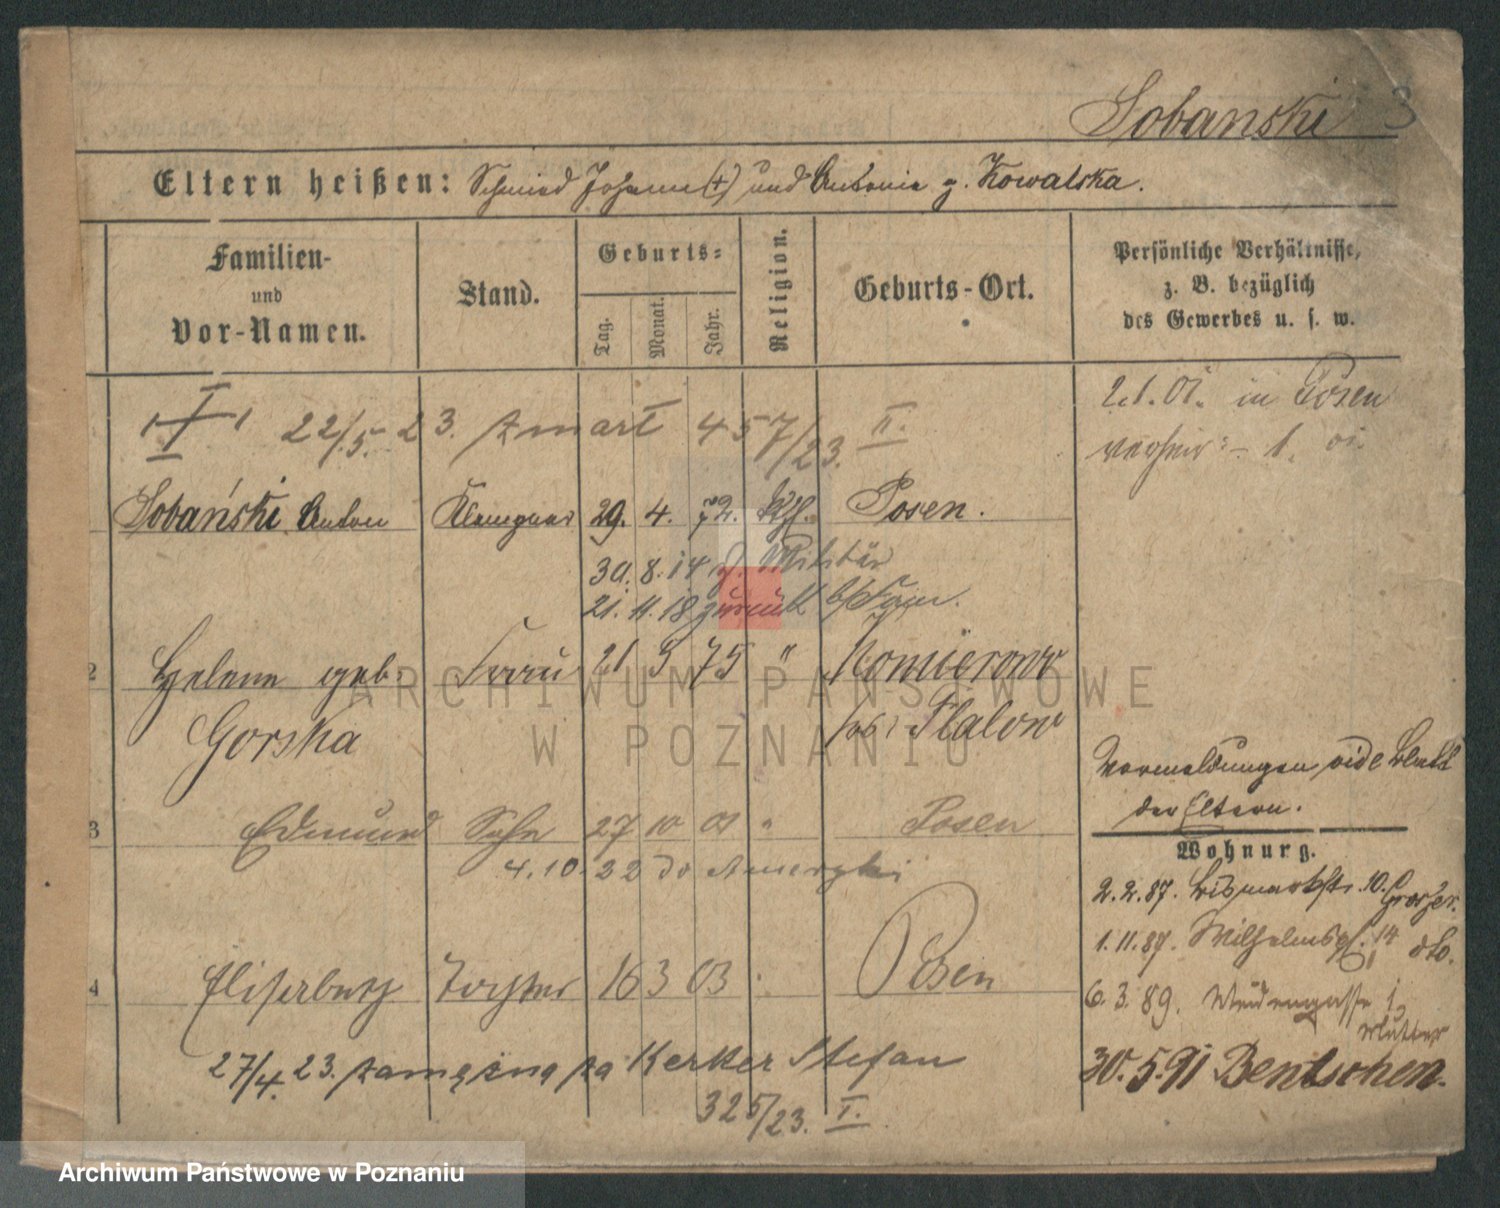 Sobanski 3
Eltern heißen: Schmied Johann (+) und Antonie g. Kowalska.
Familien-
und
Vor-Namen.
Stand.
Geburts-
Tag.
Monat.
Jahr.
Religion.
Geburts-Ort.
Persönliche Verhältnisse,
z. B. bezüglich
des Gewerbes u. s. w.
2.1.01. in Posen
verheir: - 1. 01.
22/5. 23. zmarł 457/23. II.
Sobański Anton Klempner 29. 4. 72. kth. Posen.
30. 8. 14 z. Militär
21. 11. 18 zurück
2 Helene geb. Frau 21 5 75 " Komierowo
Gorska Flatow
Vormeldungen vide Blatt
der Eltern.
3 Edmund Sohn 27 10 01 " Posen
4.10.22 do Ameryki
Wohnung.
2.2.87. Bismarckstr. 10.
1.11.87. Wilhelmspl. 14 dto.
4 Elisabeth Tochter 16 3 03 Posen
6.3.89. Weidengasse 1,
Mutter
30.5.91 Bentschen.
27/4. 23. zamężna za Kerker Stefan
325/23. I.
ARCHIWUM PAŃSTWOWE
W POZNANIU
Archiwum Państwowe w Poznaniu